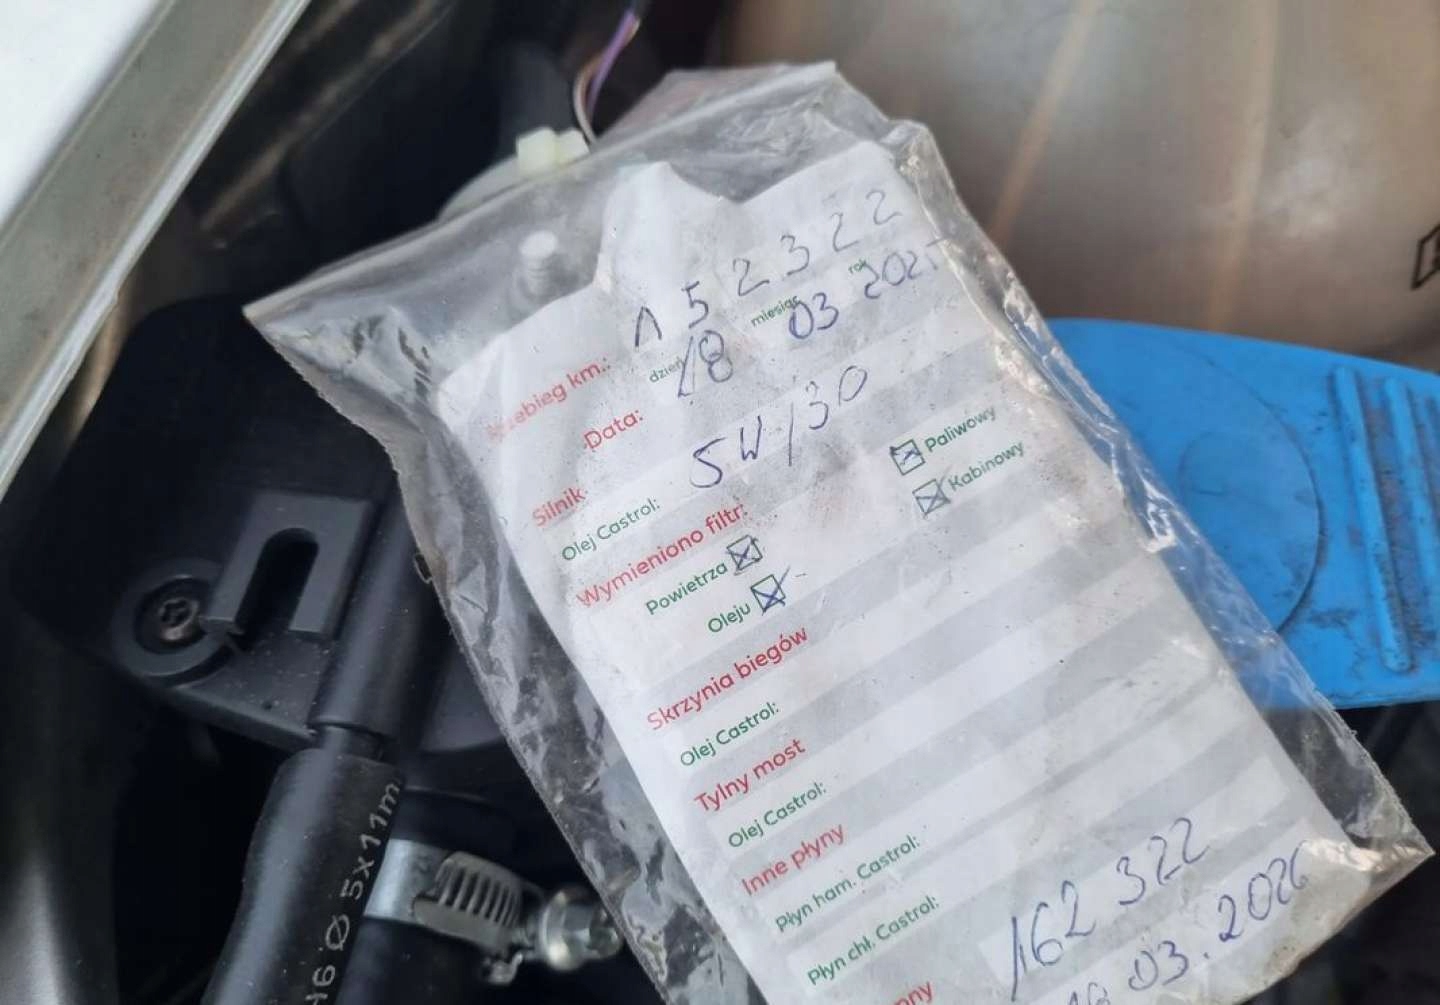 Przebieg km.: 152322
Data: dzień 18 miesiąc 03 rok 2025
Silnik
Olej Castrol: 5W/30
Wymieniono filtr:
Powietrza ☒ Paliwowy ☒
Oleju ☒ Kabinowy ☒
Skrzynia biegów
Olej Castrol:
Tylny most
Olej Castrol:
Inne płyny
Płyn ham. Castrol:
Płyn chł. Castrol:
162 322
18 03. 2026
Ø 5X11m